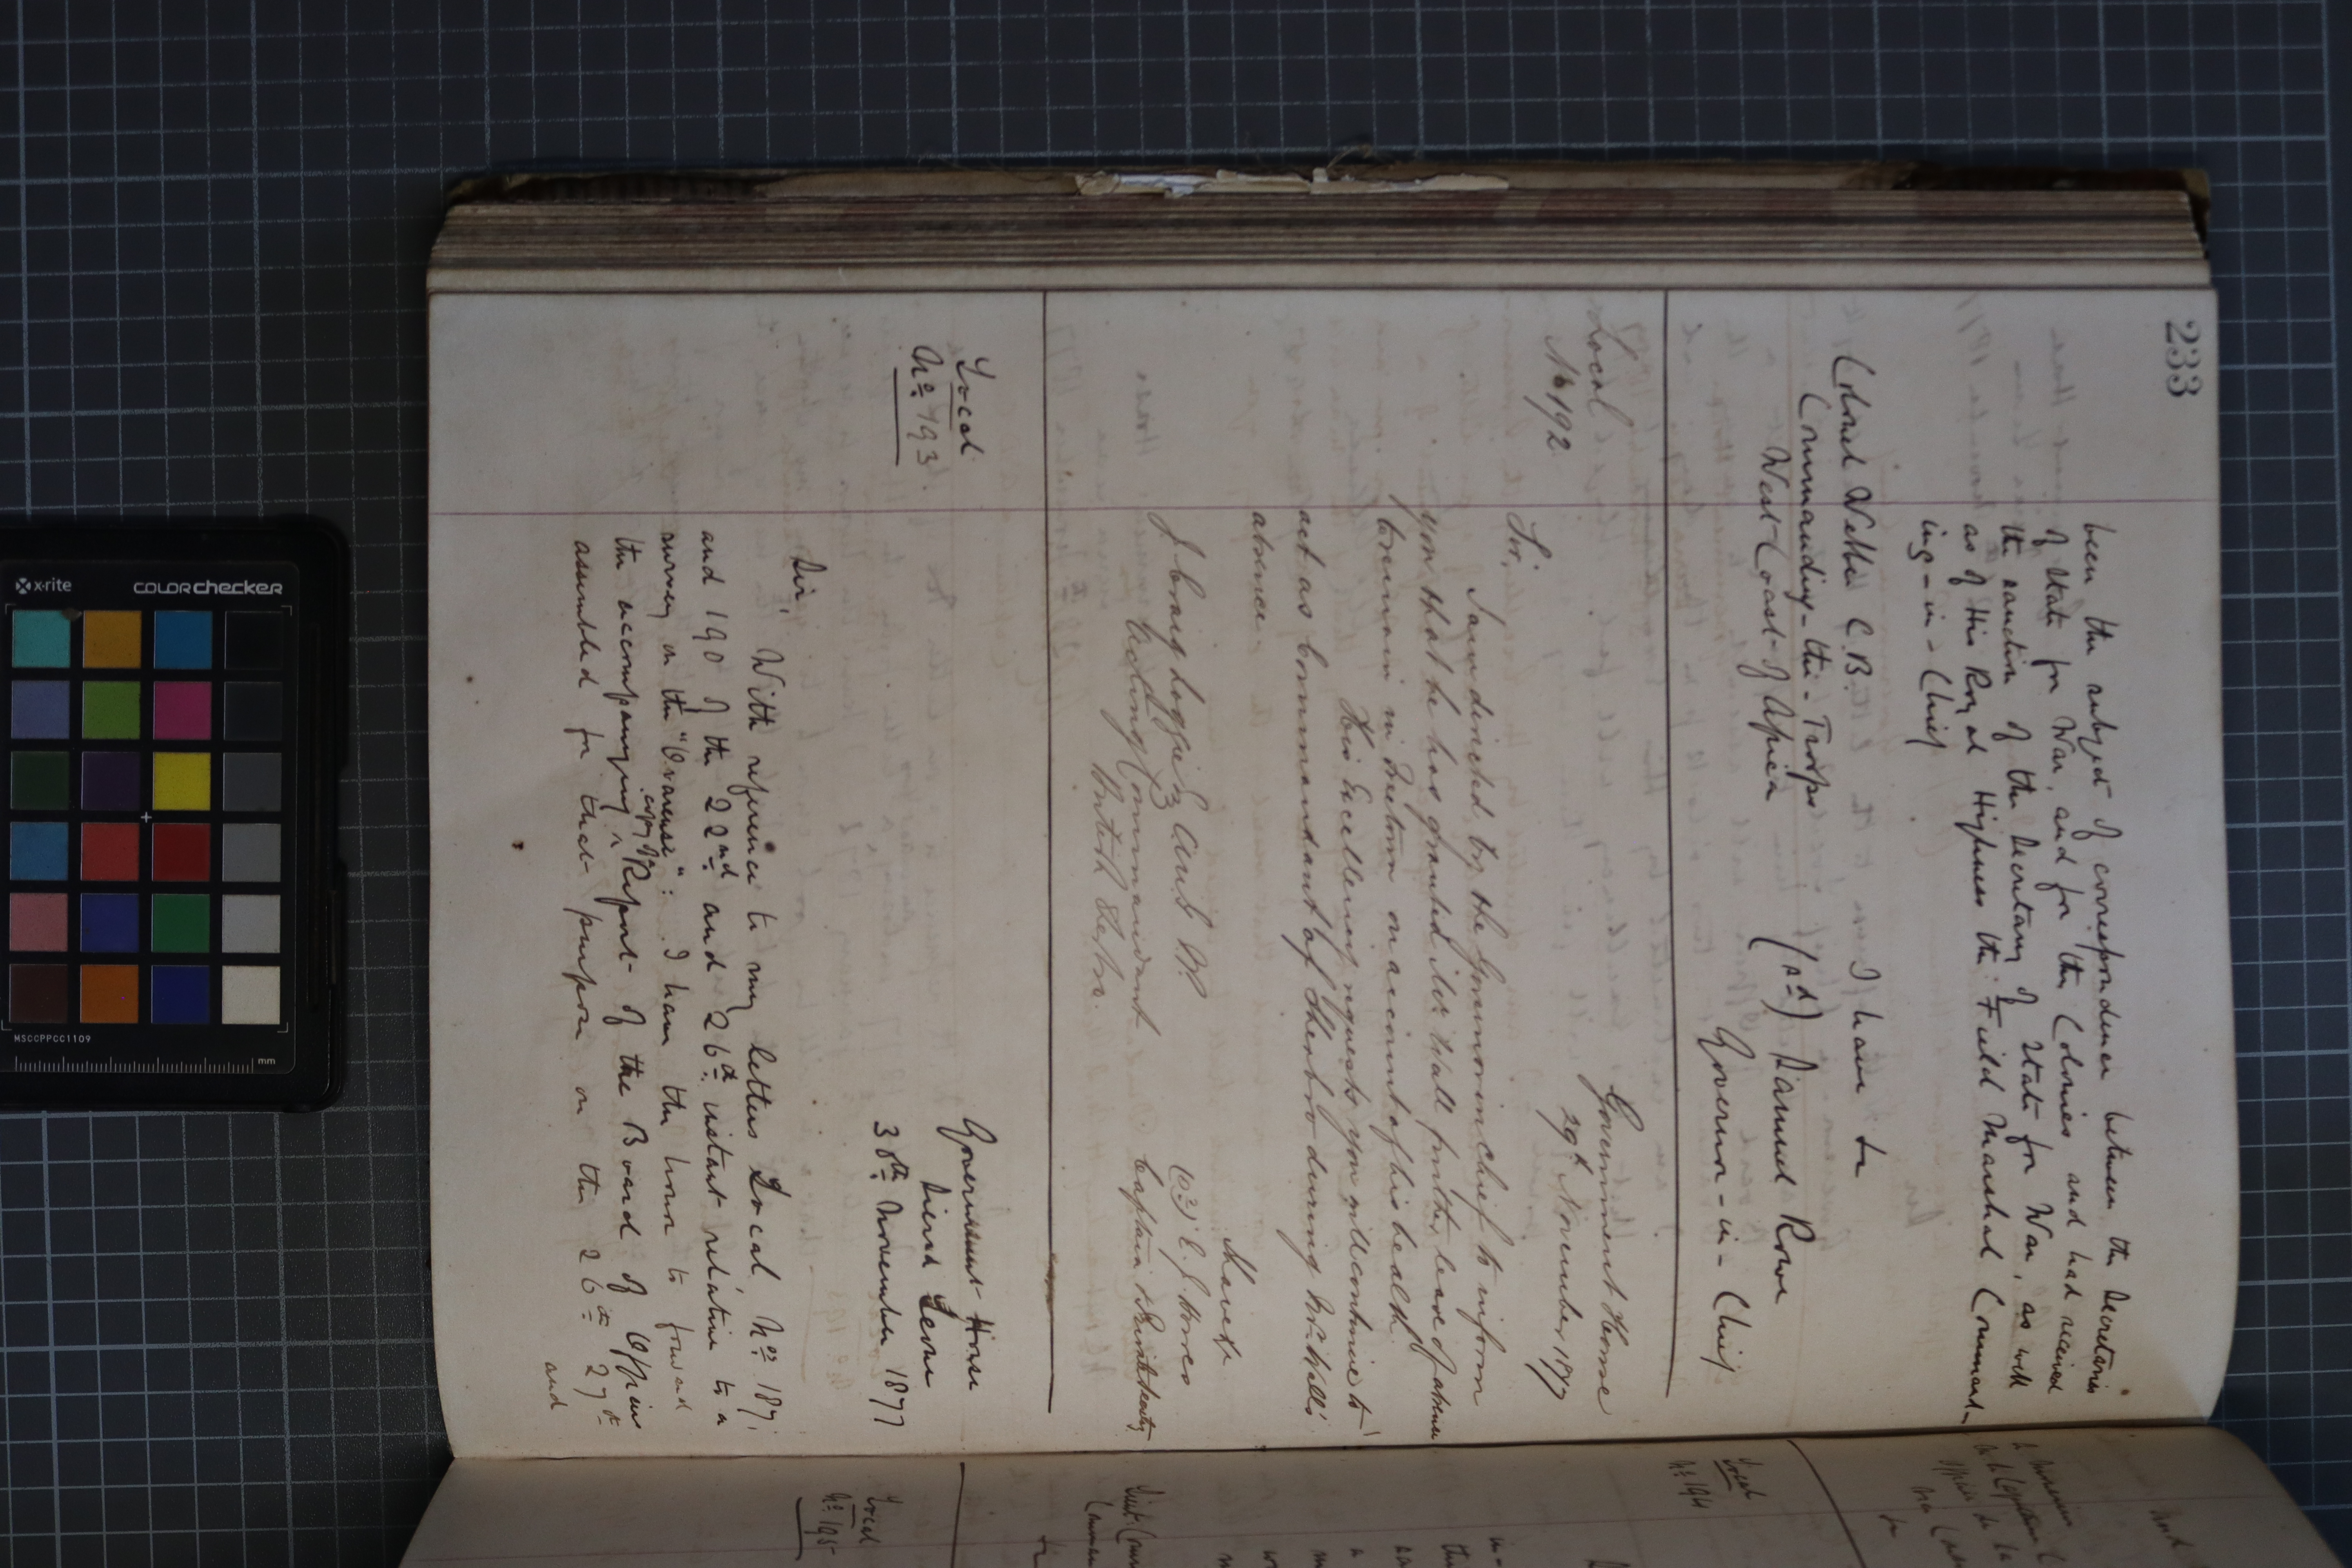 233
been the subject of correspondence between the Secretaries
of State for War, and for the Colonies and had received
the sanction of the Secretary of State for War, as well
as of His Royal Highness the Field Marshal Command-
ing-in-Chief
I have &c
Colonel Webber C.B.
Commanding-the-Troops
West-Coast-of Africa
(sd) Samuel Rowe
Governor-in-Chief
Local
No 192
Government House
29th November 1877
Sir,
I am directed by the Governor in chief to inform
you that he has granted Mr Wall further leave of absence
to remain in Freetown on account of his health.
His Excellency requests you will continue to
act as Commandant of Sherbro during Mr Wall's
absence
I have &c
J Craig Loggie Esq
Acting Commandant
British Sherbro.
Captain & Private Secretary
Local
No 193.
Government House
Sierra Leone
30th November 1877
Sir,
With reference to my letters Local, Nos 187
and 190 of the 22nd and 26th instant relative to a
survey on the : I have the honor to forward
the accompanying copy of Report of the Board of Officers
assembled for that purpose on the 26th 27th
and
Local
No 194
Local
No 195
x-rite
colorchecker
MSCCPPCC1109
mm